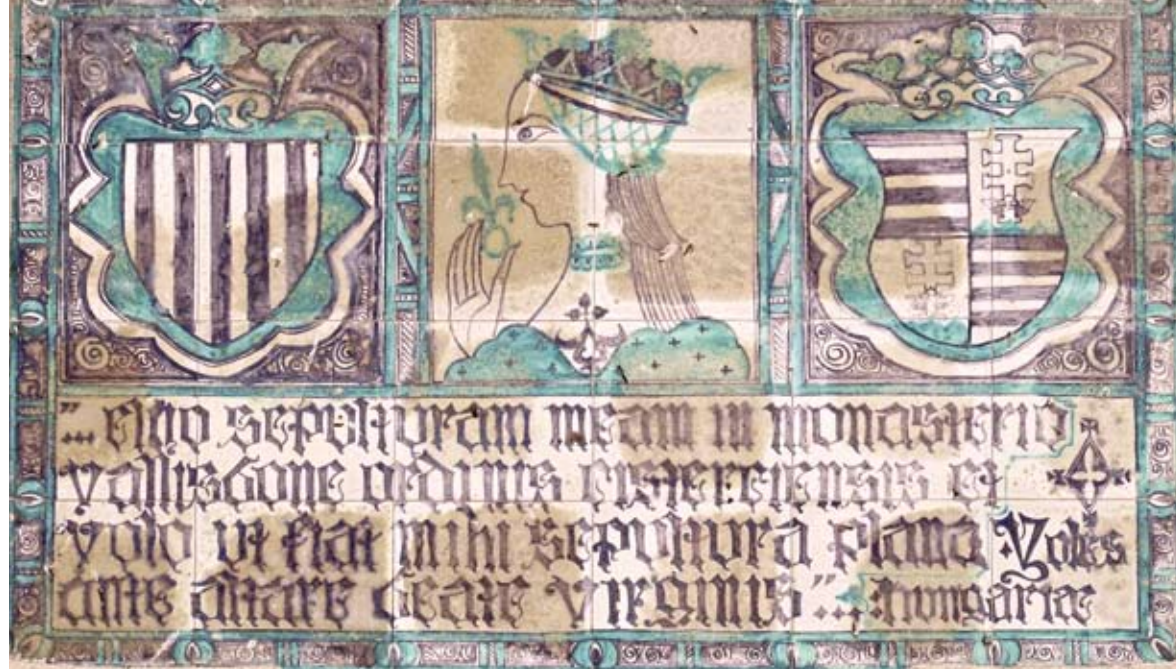 "... eligo sepulturam meam in monasterio
vallisbone ordinis cisterciensis et
volo ut fiat mihi sepultura plana Yoles
ante altare beate virginis" ... hungariae